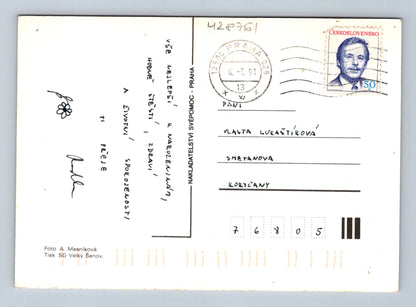 428761
ČESKOSLOVENSKO
50
PRAHA 025
13
VŠE NEJLEPŠÍ K NAROZENINÁM,
HODNĚ ŠTĚSTÍ, ZDRAVÍ
A ŽIVOTNÍ SPOKOJENOSTI
TI PŘEJE
NAKLADATELSTVÍ SVÉPOMOC - PRAHA
PANÍ
MALFA LUKAŠTÍKOVÁ
SMETANOVA
KORYČANY
7 6 8 0 5
Foto A. Masníková
Tisk SG Velký Šenov